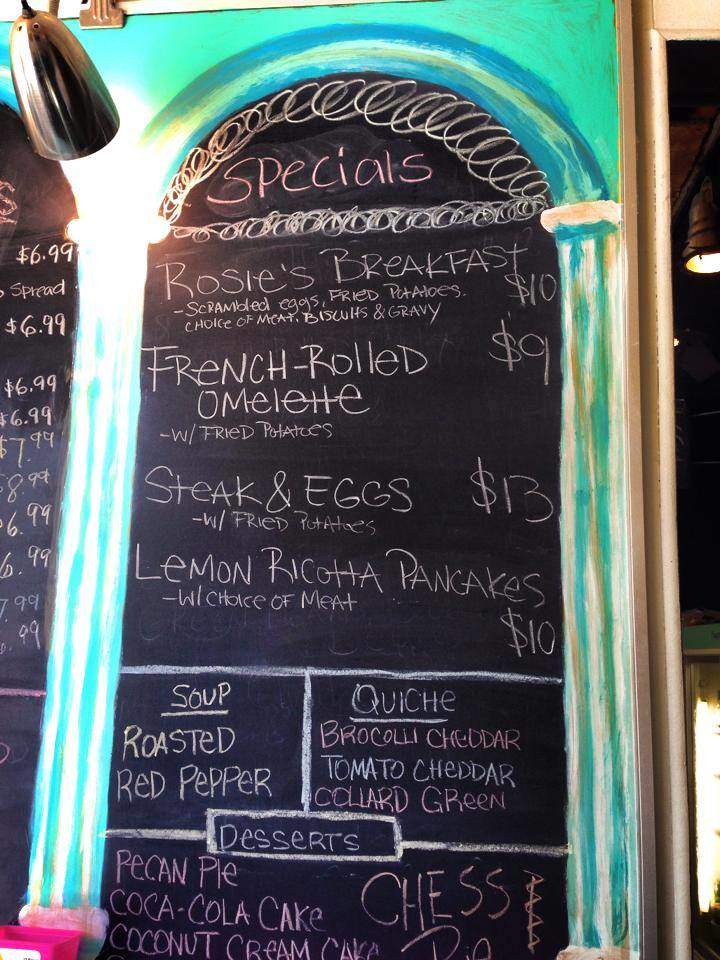 $6.99
Spread
$6.99
$6.99
$6.99
$7.99
8.99
6.99
6.99
7.99
.99
Specials
Rosie's Breakfast
$10
-Scrambled eggs, Fried Potatoes.
choice of meat, Biscuits & Gravy
French-Rolled $9
Omelette
-w/ Fried Potatoes
Steak & Eggs $13
-w/ Fried Potatoes
Lemon Ricotta Pancakes
-w/ choice of meat
$10
Soup
Roasted
Red Pepper
Quiche
Brocolli Cheddar
Tomato Cheddar
Collard Green
Desserts
Pecan Pie
Coca-Cola Cake
Coconut Cream Cake
Chess
Pie